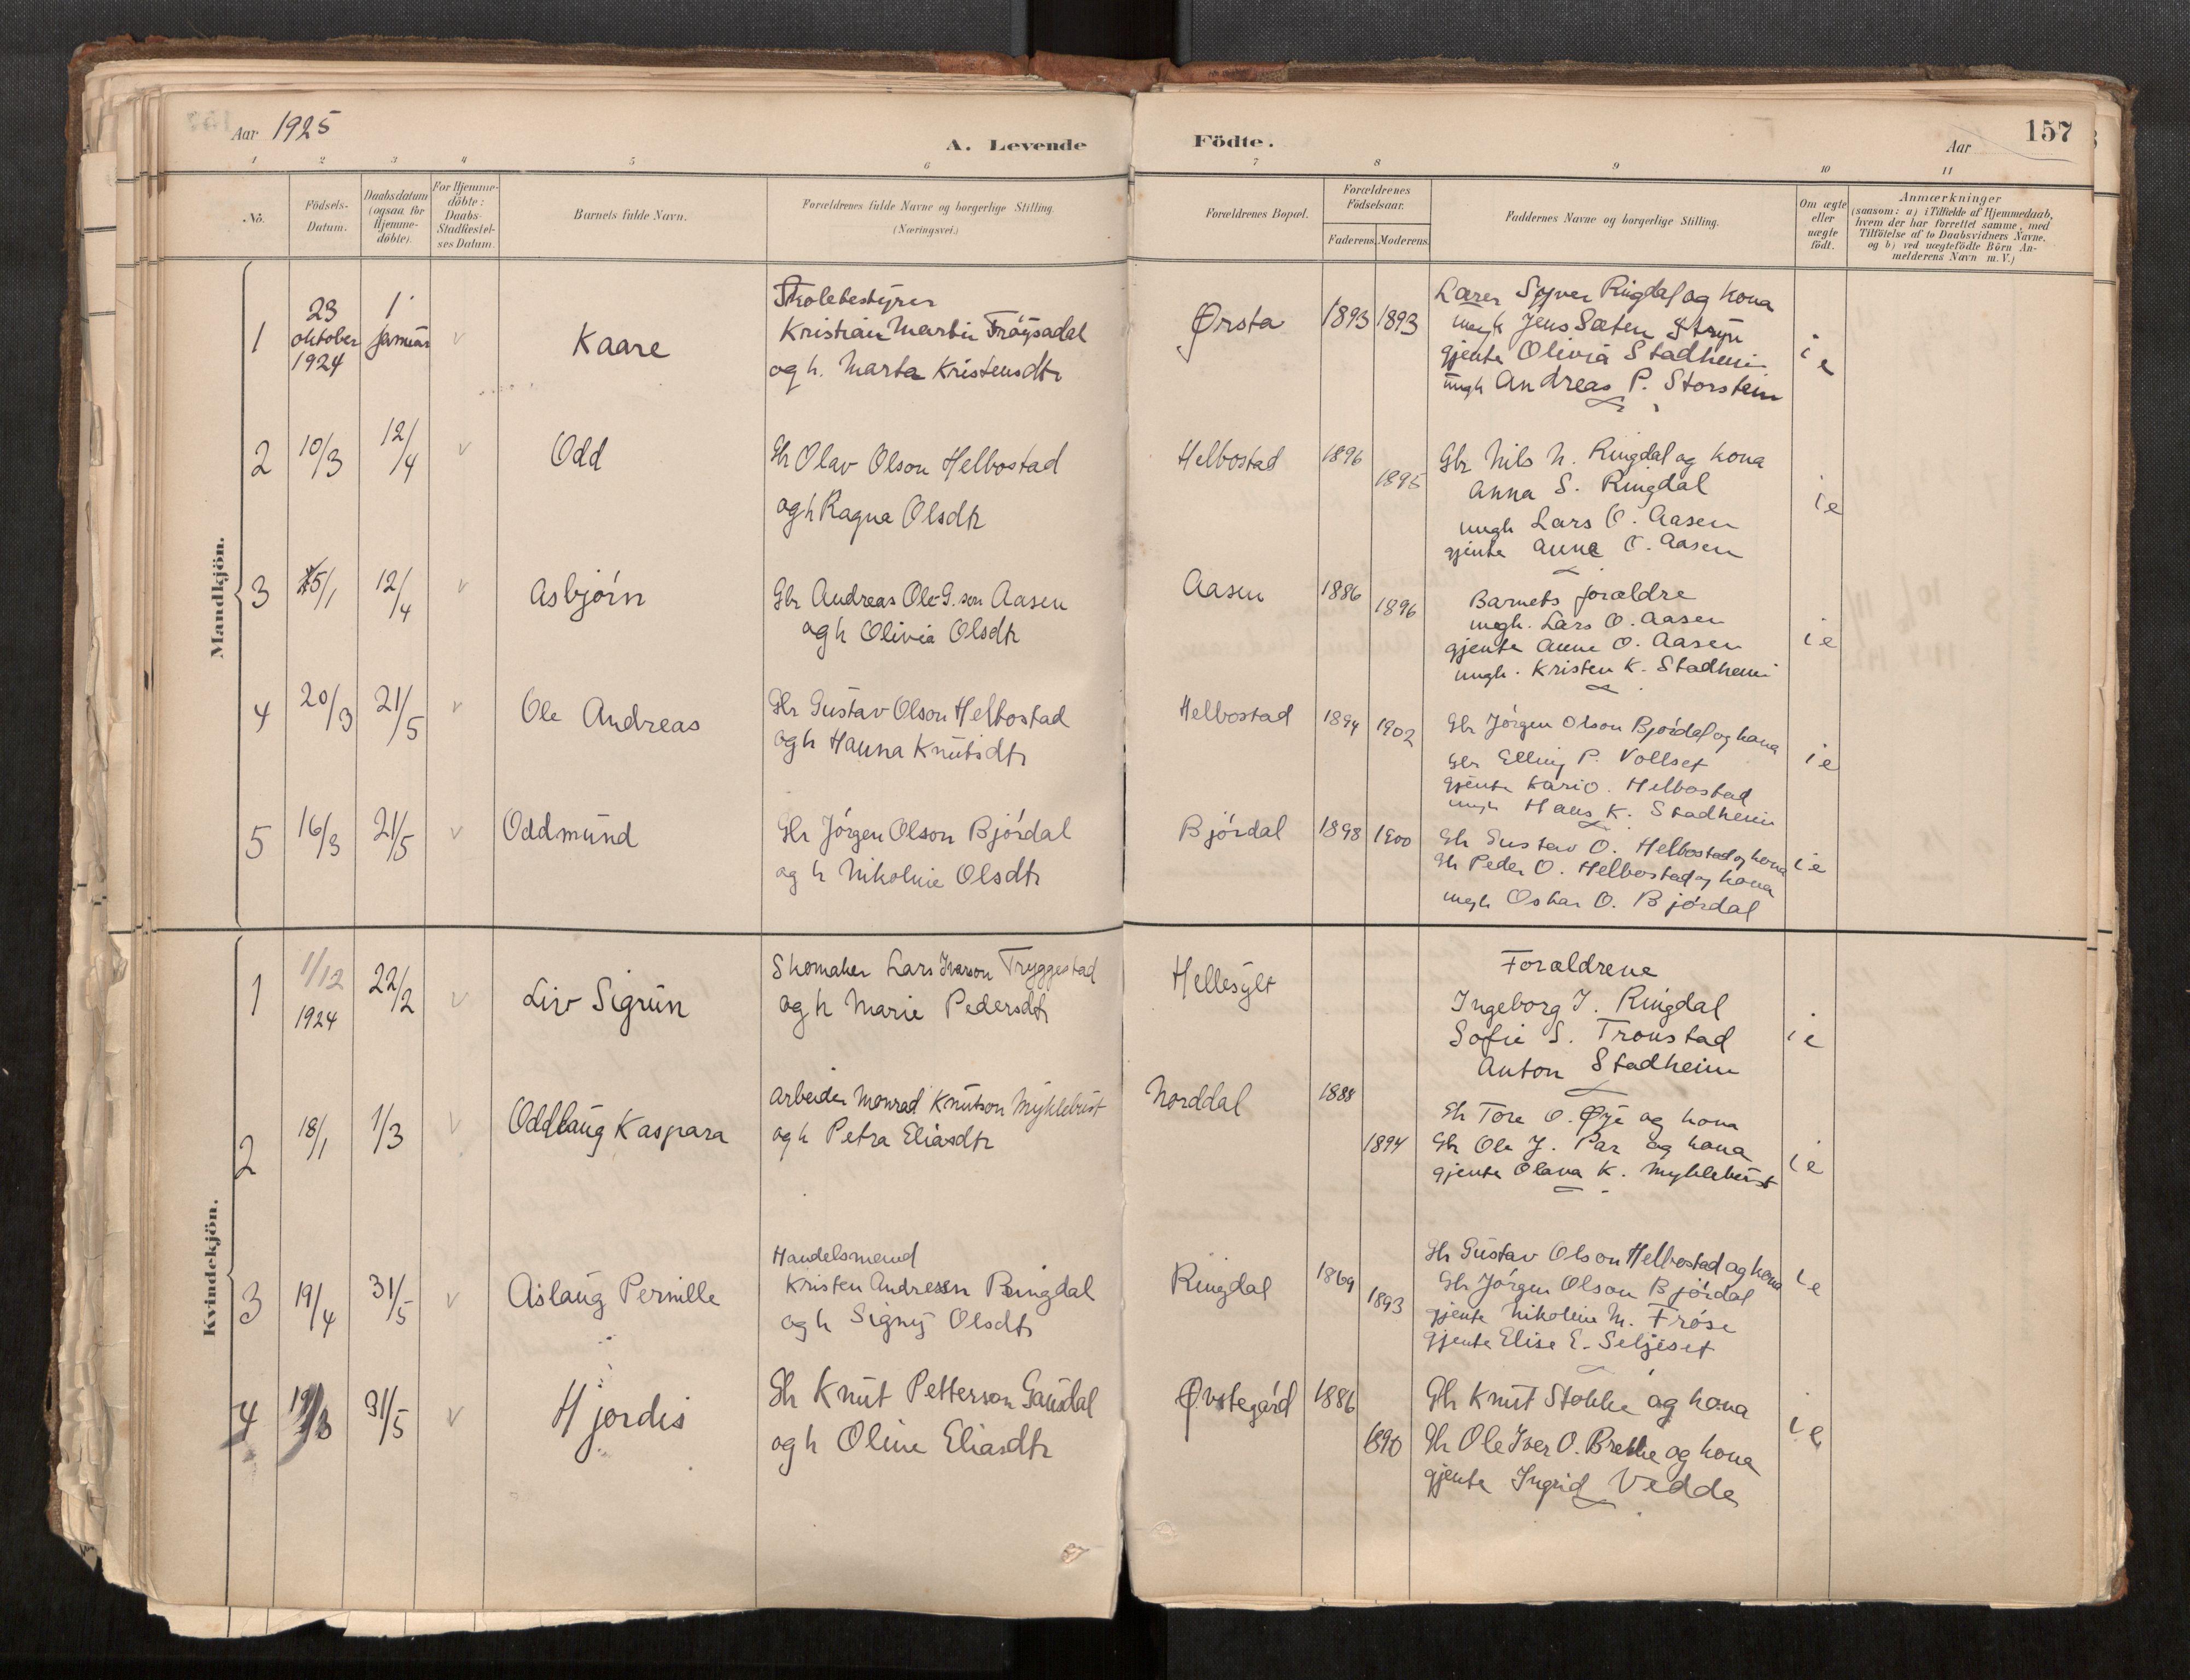 Aar 1925
A. Levende Födte.
Aar
157
1 2 3 4 5 6 7 8 9 10 11
No.
Födsels-
Datum.
Daabsdatum
(ogsaa for
Hjemme-
döbte).
For Hjemme-
döbte:
Daabs-
Stadfæstel-
ses Datum.
Barnets fulde Navn.
Forældrenes fulde Navne og borgerlige Stilling.
(Næringsvei.)
Forældrenes Bopæl.
Forældrenes
Födselsaar.
Faderens. Moderens.
Faddernes Navne og borgerlige Stilling.
Om ægte
eller
uægte
födt.
Anmærkninger
(saasom: a) i Tilfælde af Hjemmedaab,
hvem der har forrettet samme, med
Tilföielse af to Daabsvidners Navne,
og b) ved uægtefödte Börn An-
melderens Navn m. V.)
Mandkjön.
1
23
oktober
1924
1
januar
v
Kaare
Skolebestyrer
Kristian Martin Frøysadal
og h. Marta Kristensdtr
Ørsta
1893
1893
Lærer Syver Ringdal og kona
ungk Jens Sæten Stryn
gjente Olivia Stadheim
ungk Andreas P. Storstein
i e
2
10/3
12/4
v
Odd
Gbr Olav Olson Helbostad
og h Ragna Olsdtr
Helbostad
1896
1895
Gbr Nils N. Ringdal og kona
Anna S. Ringdal
ungk Lars O. Aasen
gjente Anne O. Aasen
i e
3
25/1
12/4
v
Asbjørn
Gbr Andreas Ole G. son Aasen
og h Olivia Olsdtr
Aasen
1886
1896
Barnets foraldre
ungk. Lars O. Aasen
gjente Anne O. Aasen
ungk. Kristen K. Stadheim
i e
4
20/3
21/5
v
Ole Andreas
Gbr Gustav Olson Helbostad
og h Hanna Knutsdtr
Helbostad
1894
1902
Gbr Jørgen Olson Bjørdal og kona
Gbr Elling P. Vollset
gjente Kari O. Helbostad
ungk Hans K. Stadheim
i e
5
16/3
21/5
v
Oddmund
Gbr Jørgen Olson Bjørdal
og h Nikoline Olsdtr
Bjørdal
1898
1900
Gbr Gustav O. Helbostad og kona
Gbr Peder O. Helbostad og kona
ungk Oskar O. Bjørdal
i e
Kvindekjön.
1
1/12
1924
22/2
v
Liv Sigrun
Skomaker Lars Ivarson Tryggestad
og h Marie Pedersdtr
Hellesylt
Foraldrene
Ingeborg J. Ringdal
Sofie S. Tronstad
Anton Stadheim
i e
2
18/1
1/3
v
Oddlaug Kaspara
Arbeider Monrad Knutson Myklebust
og h Petra Eliasdtr
Norddal
1888
1894
Gbr Tore O. Øye og kona
Gbr Ole J. Par og kona
gjente Olava K. Myklebust
i e
3
19/4
31/5
v
Aslaug Pernille
Handelsmand
Kristen Andresen Ringdal
og h Signy Olsdtr
Ringdal
1869
1893
Gbr Gustav Olson Helbostad og kona
Gbr Jørgen Olson Bjørdal
gjente Nikoline M. Frøse
gjente Elise E. Seljeset
i e
4
31/5
v
Hjordis
Gbr Knut Petterson Gausdal
og h Oline Eliasdtr
Øvstegård
1886
1890
Gbr Knut Stokke og kona
Gbr Ole Iver O. Brekke og kona
gjente Ingrid Vedde
i e